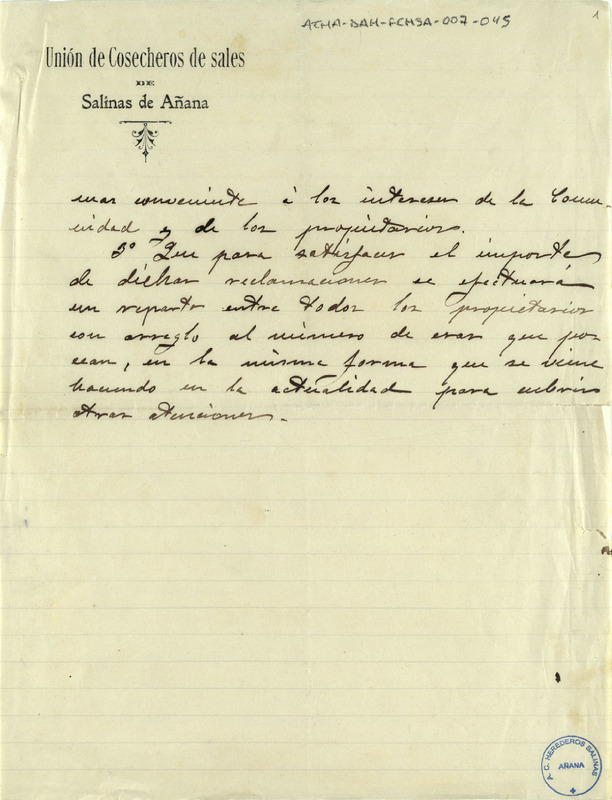 ATHA-DAH-FCHSA-007-045
1
Unión de Cosecheros de sales
DE
Salinas de Añana
mas conveniente á los intereses de la Comu-
nidad y de los propietarios.
3º Que para satisfacer el importe
de dichas reclamaciones se efectuará
un reparto entre todos los propietarios
con arreglo al número de eras que po-
sean, en la misma forma que se viene
haciendo en la actualidad para cubrir
otras atenciones.
HEREDEROS SALINAS
AÑANA